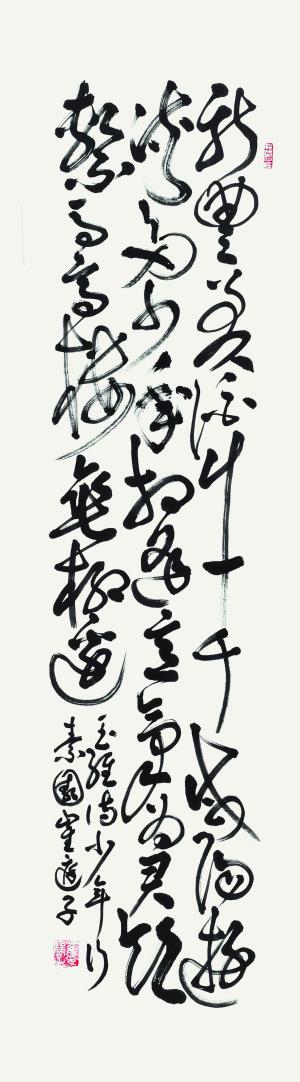 新豐美酒斗十千咸陽遊
俠多少年相逢意氣為君飲
繫馬高樓垂柳邊
王維詩少年行
素園崔子